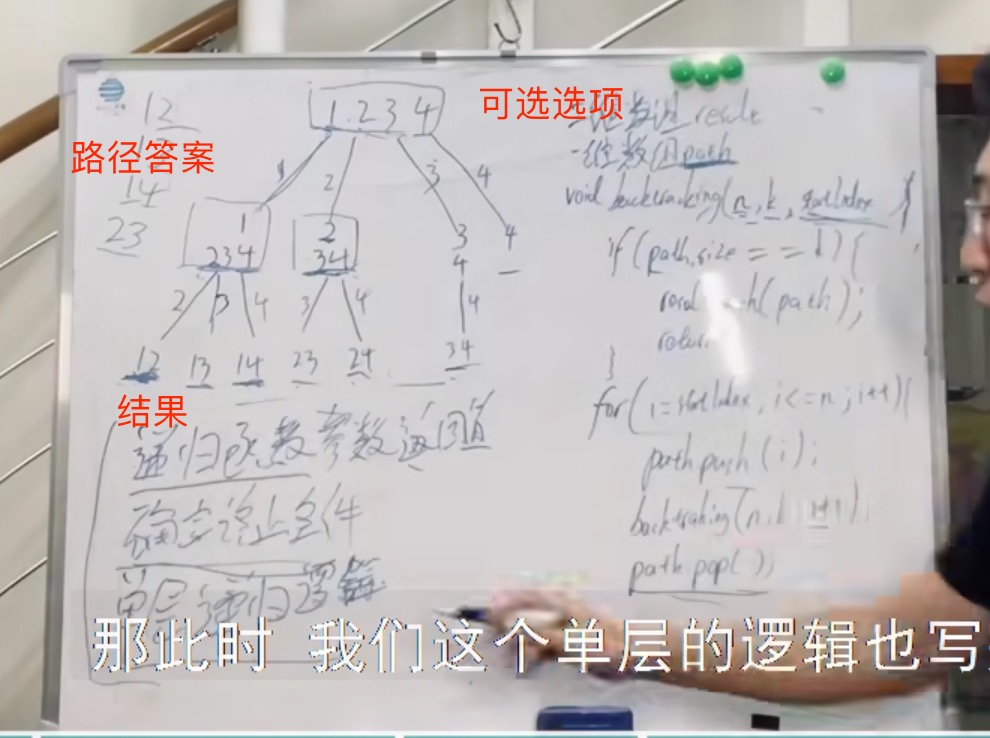 12
13
14
23
路径答案
1 2 3 4
可选选项
1 2 3 4
1
234
2
34
3
4
4
2 3 4 3 4 4
12 13 14 23 24 34
结果
递归函数参数返回值
确定终止条件
单层递归逻辑
一维数组path
void backtracking(n,k,startIndex){
if(path.size ==
(path);
}
for(i=startIndex,i<=n;i++){
path push(i);
backtraking(n,k
path.pop();
那此时 我们这个单层的逻辑也写